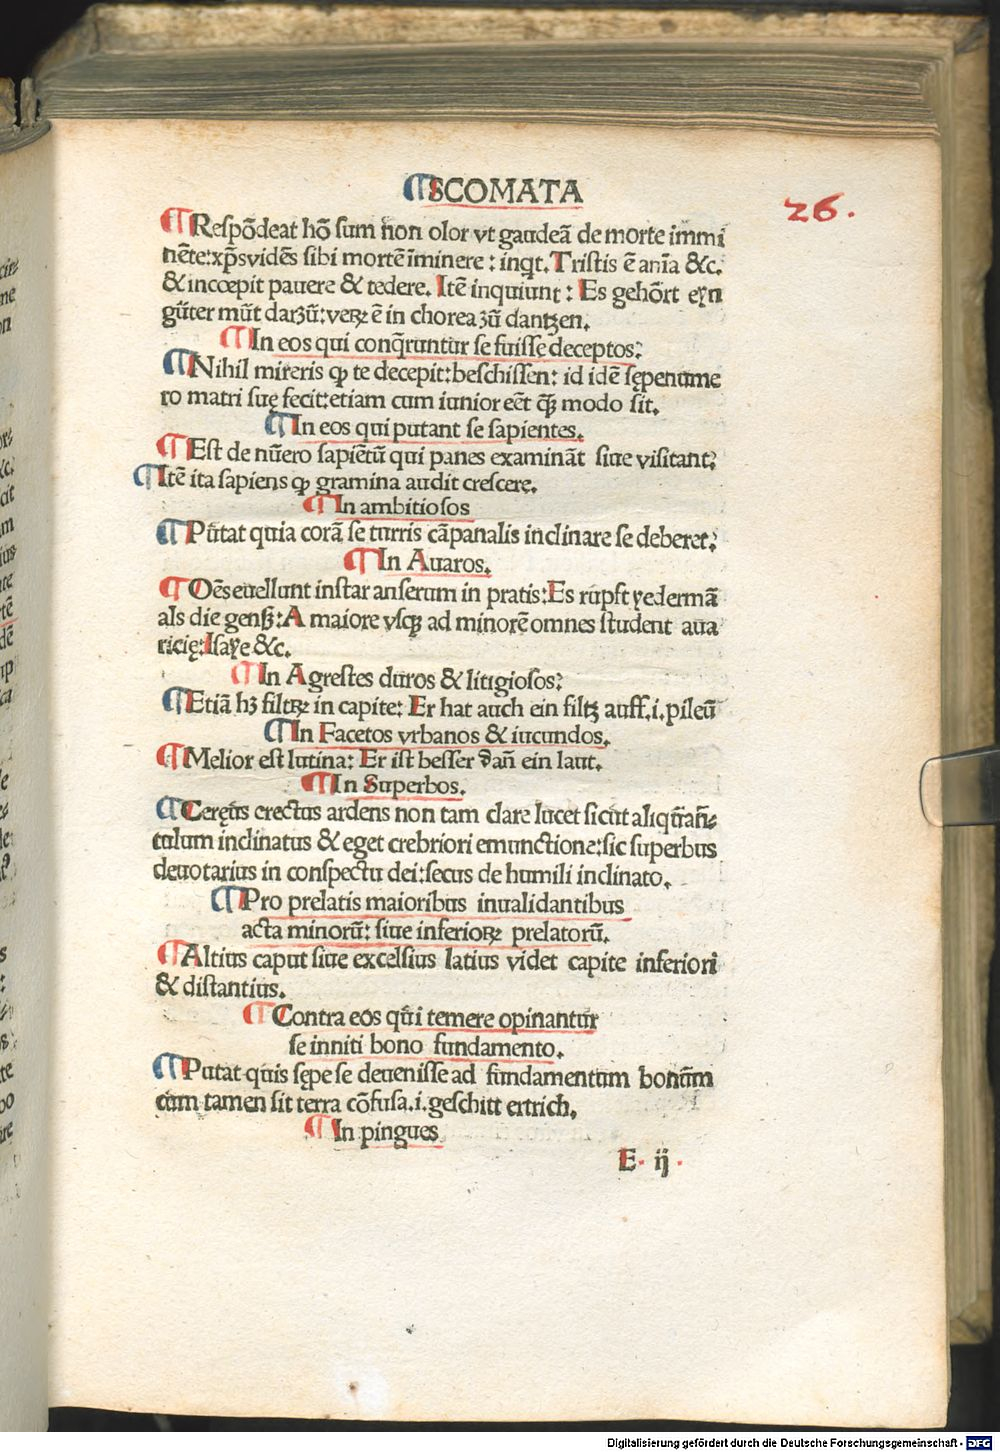 ¶SCOMATA
26.
¶Respõdeat hõ sum non olor vt gaudeã de morte immi
nẽte: xp̃s vidẽs sibi mortẽ ĩminere: inqt. Tristis ẽ anĩa &c.
& incœpit pauere & tedere. Itẽ inquiunt: Es gehõrt eyn
gůter můt darzů: verꝝ ẽ in chorea zů dantzen.
¶In eos qui conq̃runtur se fuisse deceptos:
¶Nihil mireris ꝙ te decepit: beschissen: id idẽ sępenume
ro matri suę fecit: etiam cum iunior eẽt q̃ꝫ modo sit.
¶In eos qui putant se sapientes.
¶Est de nũero sapiẽtũ qui panes examinãt siue visitant:
¶Itẽ ita sapiens ꝙ gramina audit crescere.
¶In ambitiosos
¶Putat quia corã se turris cãpanalis inclinare se deberet:
¶In Auaros.
¶Oẽs euellunt instar anserum in pratis: Es rupft yedermã
als die genß: A maiore vsqꝫ ad minorẽ omnes student aua
ricię: Isaye &c.
¶In Agrestes duros & litigiosos:
¶Etiã hꝫ filtꝝ in capite: Er hat auch ein filtz auff .i. pileũ
¶In Facetos vrbanos & iucundos.
¶Melior est lutina: Er ist besser dañ ein laut.
¶In Superbos.
¶Cereus erectus ardens non tam clare lucet sicut aliquãn-
tulum inclinatus & eget crebriori emunctione: sic superbus
deuotarius in conspectu dei: secus de humili inclinato.
¶Pro prelatis maioribus inualidantibus
acta minorũ: siue inferioꝝ prelatorũ.
¶Altius caput siue excelsius latius videt capite inferiori
& distantius.
¶Contra eos qui temere opinantur
se inniti bono fundamento.
¶Putat quis sępe se deuenisse ad fundamentum bonum
cum tamen sit terra cõfusa .i. geschitt ertrich.
¶In pingues
E ij
Digitalisierung gefördert durch die Deutsche Forschungsgemeinschaft - DFG